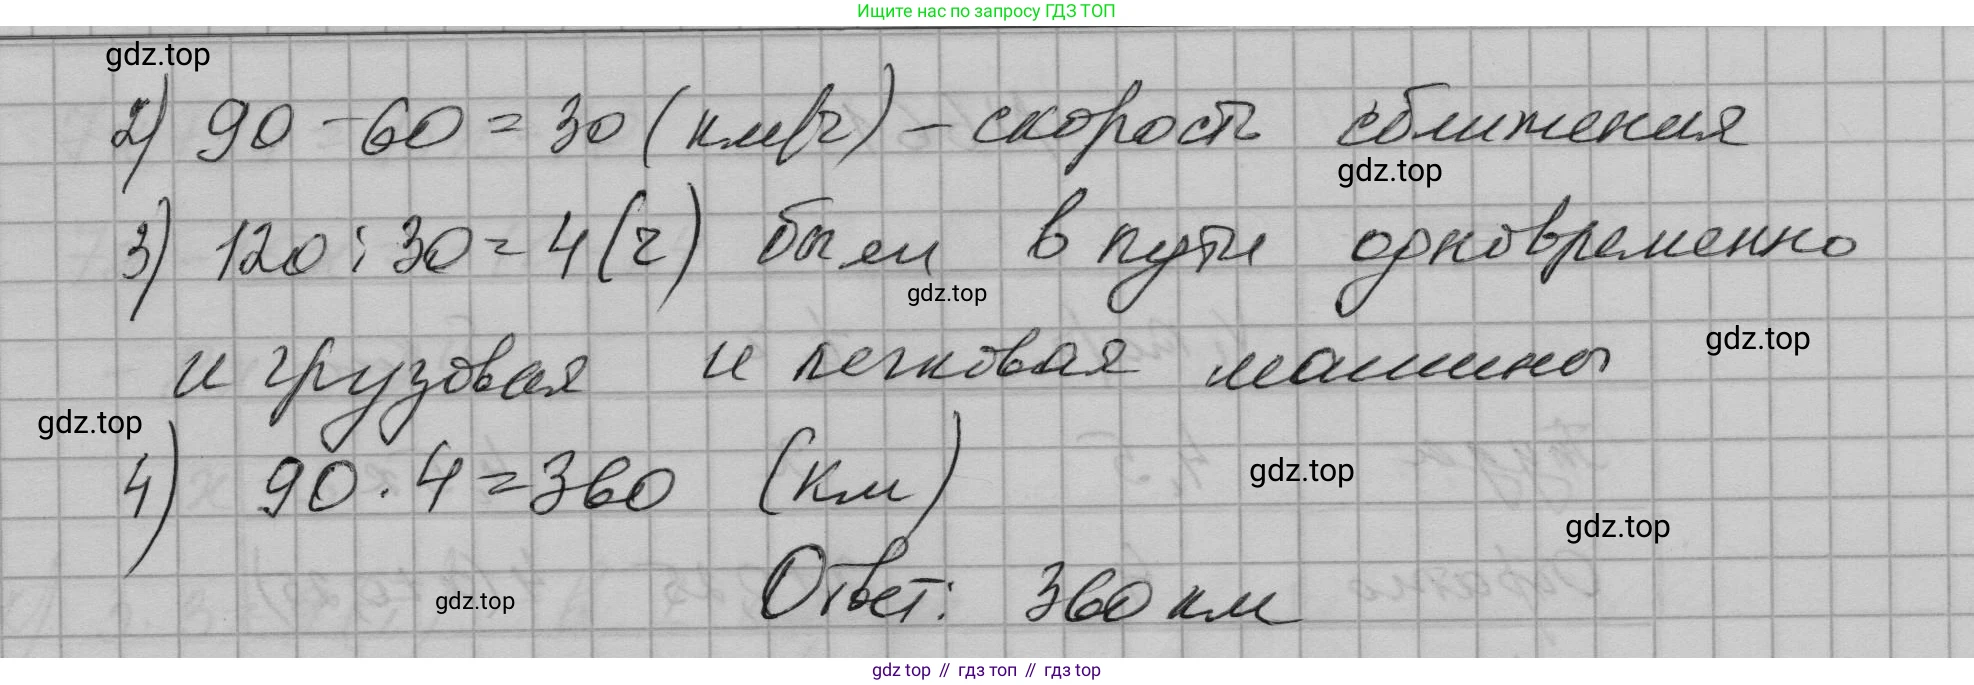 Ищите нас по запросу ГДЗ ТОП
gdz.top
2) 90 - 60 = 30 (км/ч) - скорость сближения
gdz.top
3) 120 : 30 = 4 (ч) были в пути одновременно
gdz.top
и грузовая и легковая машины
gdz.top
gdz.top
4) 90 · 4 = 360 (км)
gdz.top
gdz.top
Ответ: 360 км
gdz.top
gdz top // гдз топ // гдз top